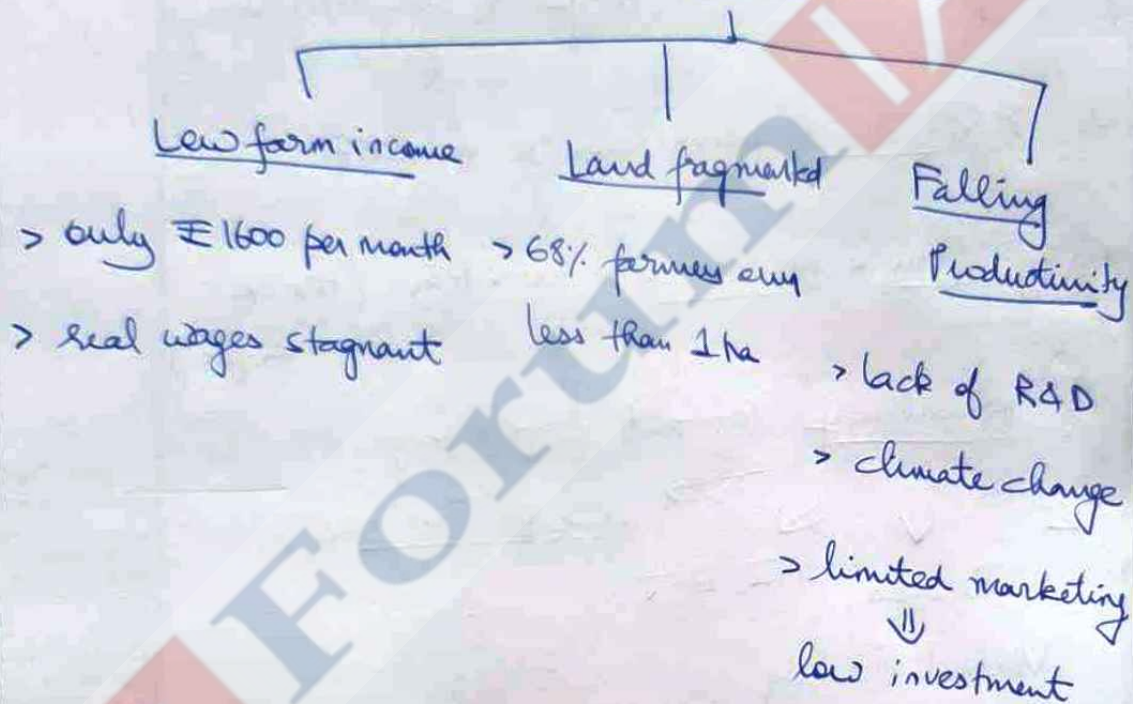 Low farm income
> only ₹1600 per month
> real wages stagnant
Land fragmented
> 68% farmers own
less than 1 ha
Falling
Productivity
> lack of R&D
> climate change
> limited marketing
⇓
low investment
Forum